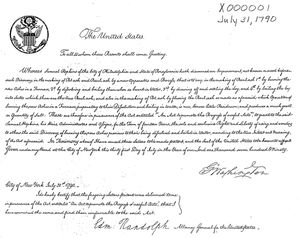 X000001
July 31, 1790
The United States
To all to whom these Presents shall come, Greeting.
Whereas Samuel Hopkins of the City of Philadelphia and State of Pensylvania hath discovered an Improvement, not known or used before
such Discovery, in the making of Pot ash and Pearl ash by a new Apparatus and Process; that is to say, in the making of Pearl ash 1st by burning the
raw Ashes in a Furnace, 2d by dissolving and boiling them when so burnt in Water, 3rd by drawing off and settling the ley, and 4th by boiling the ley
into Salts which then are the true Pearl ash; and also in the making of Pot ash by fluxing the Pearl ash so made as aforesaid; which Operation of
burning the raw Ashes in a Furnace, preparatory to their Dissolution and boiling in Water, is new, leaves little Residuum; and produces a much greater
Quantity of Salt: These are therefore in pursuance of the Act, entituled "An Act to promote the Progress of useful Arts", to grant to the said
Samuel Hopkins, his Heirs, Administrators and Assigns, for the Term of fourteen Years, the sole and exclusive Right and Liberty of using and vending
to others the said Discovery of burning the raw Ashes previous to their being dissolved and boiled in Water, according to the true Intent and Meaning
of the Act aforesaid. In Testimony whereof I have caused these Letters to be made patent, and the Seal of the United States to be hereunto affixed
Given under my Hand at the City of New York this thirty first Day of July in the Year of our Lord one thousand seven hundred & Ninety.
G Washington
City of New York July 31st 1790.
I do hereby Certify that the foregoing Letters patent were delivered to me
in pursuance of the Act, entituled "An Act to promote the Progress of useful Arts"; that I
have examined the same, and find them conformable to the said Act.
Edm: Randolph Attorney General for the United States.